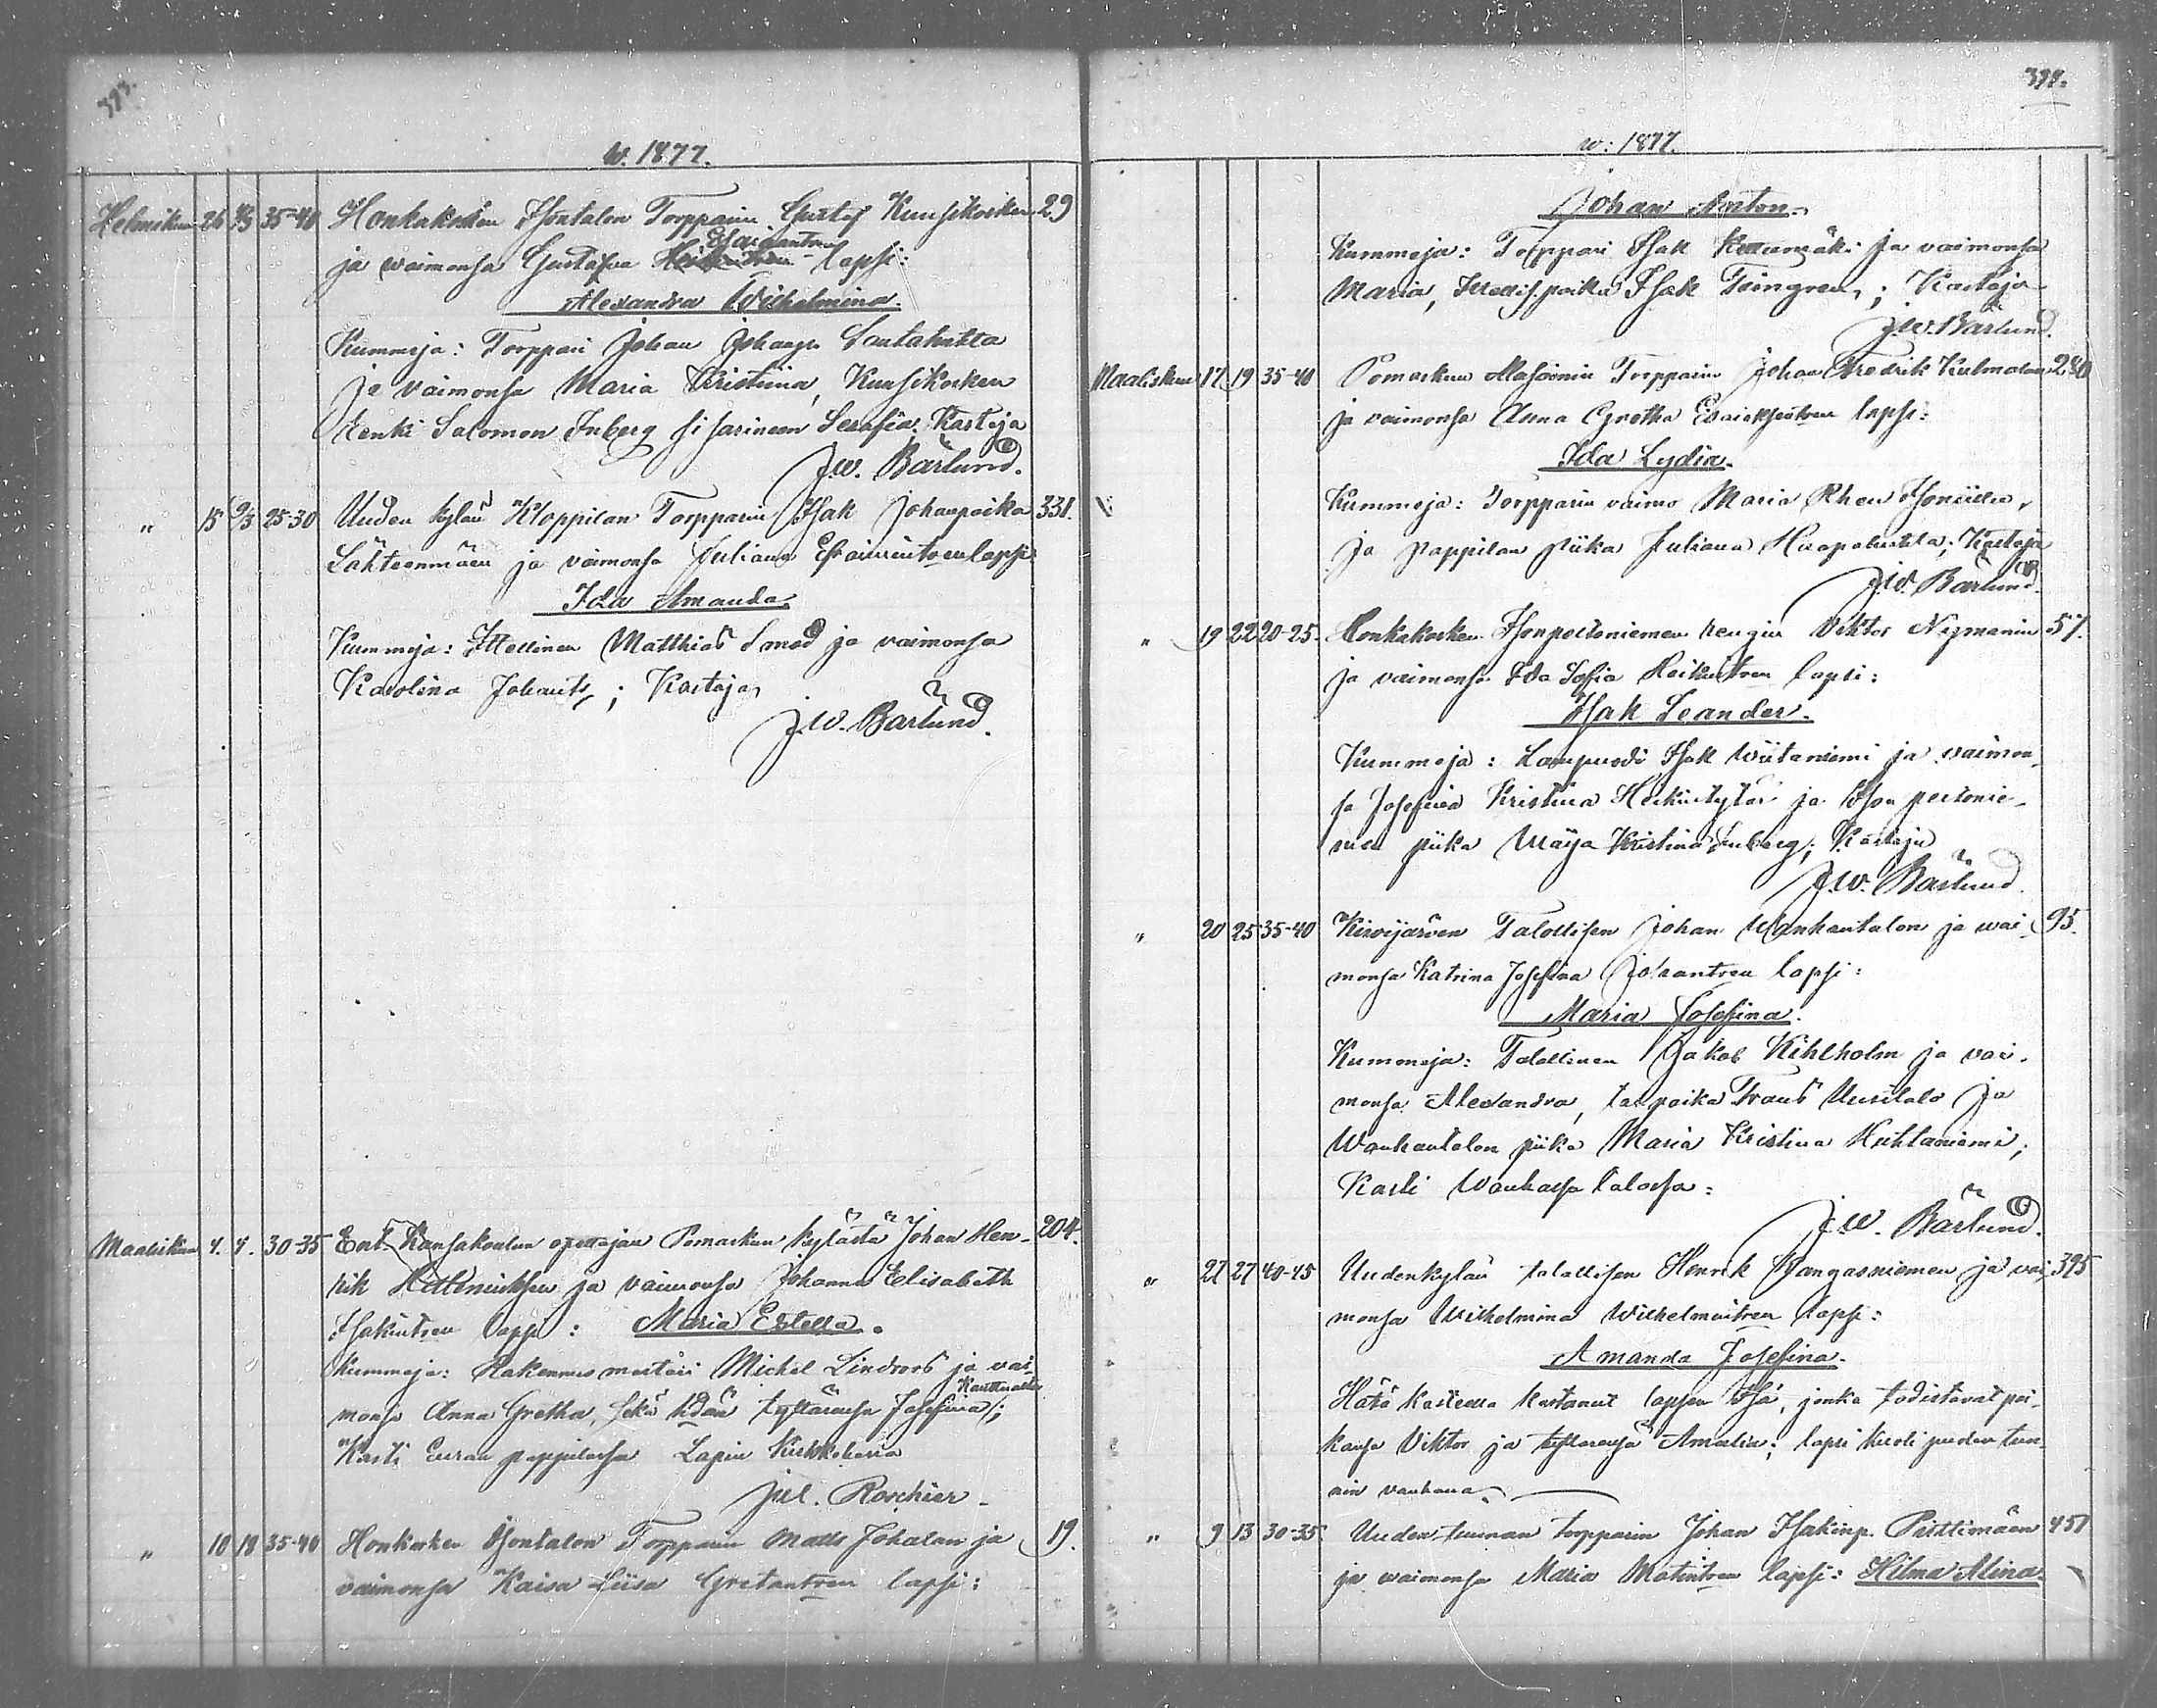 393.
w. 1877.
Helmikuu 26 4/3 35-40 Honkakosken Isontalon Torpparin Gustaf Kuusikosken 29
Esaiantren
ja waimonsa Gustafva lapsi:
Alexandra Wilhelmina.
Kummeja: Torppari Johan Johansp. Santahuhta
ja vaimonsa Maria Kristiina, Kuusikosken
renki Salomon Inberg sisarineen Serafia. Kastaja
J.W. Bärlund.
" 15 9/3 25-30 Uuden kylän Kloppilan Torpparin Isak Johanpoika 331.
Lähteenmäen ja vaimonsa Juliana lapsi
Ida Amanda.
Kummeja: Itsellinen Matthias Smed ja vaimonsa
Karolina Johants; Kastaja
J.W. Bärlund.
Maaliskuu 4. 4. 30-35 Ent. Kansakoulun opettajan Pomarkun kylästä Johan Hen- 204.
rik ja vaimonsa Johanna Elisabeth
Isakintren lapsi: Maria Estella.
Kummeja: Rakennus mestari Michel Lindroos ja vai-
Kauttualta
monsa Anna Gretha, sekä tyttärensä Josefina;
Kasti Euran pappilassa Lapin Kirkkoherra
Jul. Rorchier.
" 10 18 35-40 Honkosken Isontalon Torpparin Matts Johalan ja 19.
vaimonsa Kaisa Liisa Gretantren lapsi:
394.
w: 1877.
Johan Anton.
Kummeja: Torppari Isak ja vaimonsa
Maria, Isak; Kastaja
J.W. Bärlund.
Maaliskuu 17 19 35-40 Pomarkun Torpparin Johan Fredrik Kulmalan 240
ja vaimonsa Anna Gretha lapsi:
Ida Lydia.
Kummeja: Torpparin vaimo Maria
ja Pappilan piika Juliana Haapaluhta; Kastaja
J.W. Bärlund.
" 19 22 20-25. Honkakosken Isonpertoniemen rengin Viktor Nymanin 57.
ja vaimonsa Ida Sofia Heikintren lapsi:
Isak Leander.
Kummeja: Lampuodi Isak Wiitaniemi ja vaimon
sa Josefina Kristina Heikintytär ja Isonpertonie-
men piika Maija Kristina Inberg; Kastaja
J.W. Bärlund.
" 20 25 35-40 Kirvijärven Talollisen Johan Wanhantalon ja wai- 95.
monsa Katrina Josefina Johantren lapsi:
Maria Josefina.
Kummeja: Talollinen Jakob Kihlholm ja vai-
monsa Alexandra, tal.poika Frans Uusitalo ja
Wanhantalon piika Maria Kristina Huhtaniemi;
Kasti Wanhassa talossa:
J.W. Bärlund.
" 27 27 40-45 Uudenkylän talollisen Henrik Kangasniemen ja vai- 395
monsa Wilhelmina Wilhelmintren lapsi:
Amanda Josefina.
Hätä kasteella kastanut lapsen Isä, jonka todistavat poi-
kansa Viktor ja tyttärensä Amalia; lapsi kuoli puolen tun-
nin vanhana.
" 9 13 30-35. Uuden tuunan torpparin Johan Isakinp. Pisttimäen 451
ja waimonsa Maria Matintren lapsi: Hilma Alina.